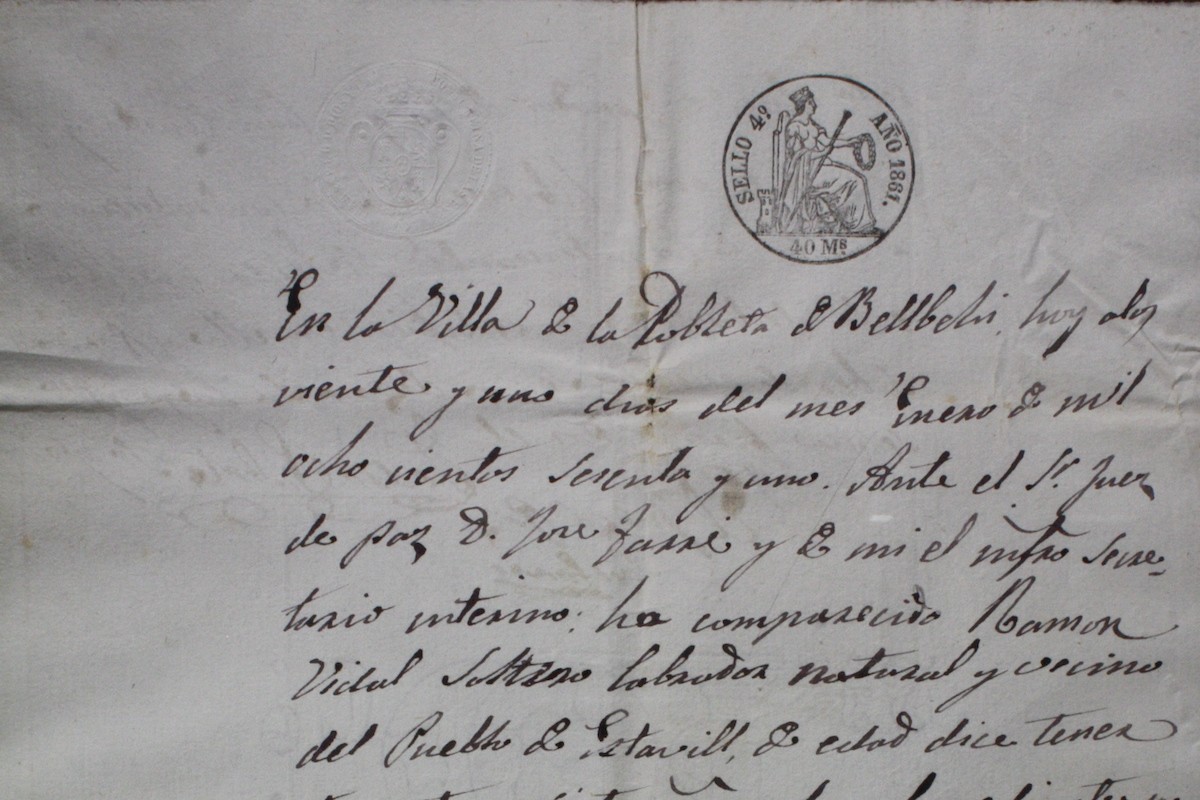 SELLO 4º AÑO 1861.
40 Ms.
En la Villa de la Pobleta de Bellbehi, hoy alos
viente y uno dias del mes Enero de mil
ocho cientos sesenta y uno. Ante el Sr. Juez
de paz D. Jose Farré y de mi el infro secre-
tario interino; ha comparecido Ramon
Vidal Soltero labrador natural y vecino
del Pueblo de Estavill, de edad dice tener